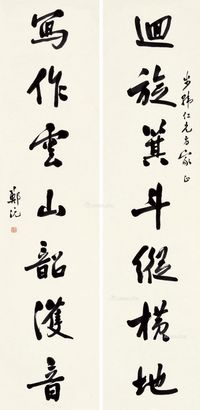 迴旋箕斗縱橫地
步韓仁兄方家正
寫作雲山韶濩音
鄭沅